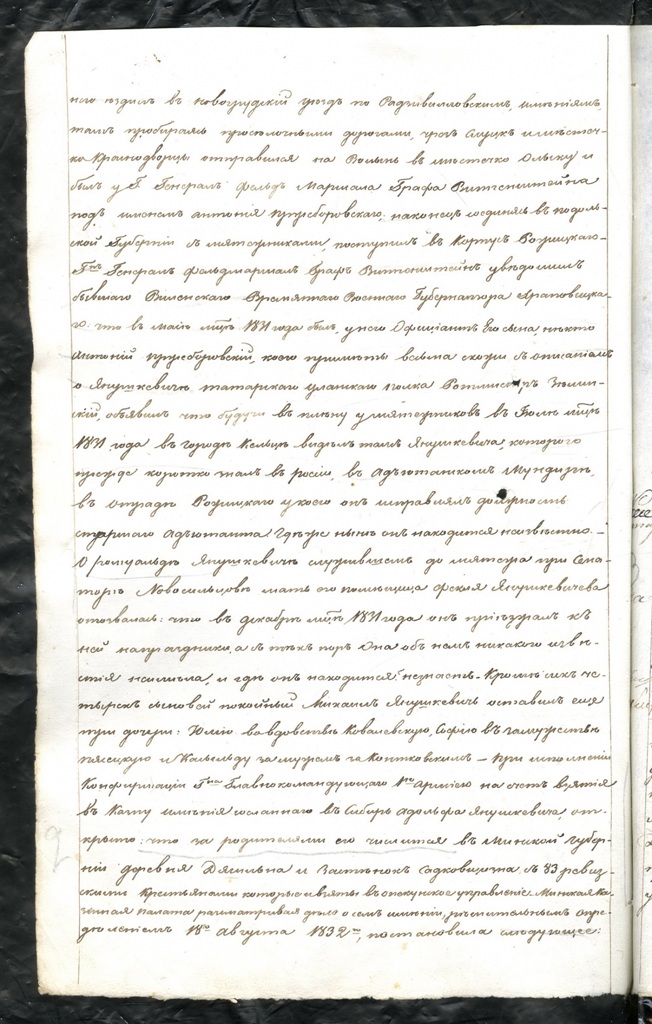 него ездилъ въ Новогрудскій уездъ по Радзивилловскимъ имѣніямъ,
тамъ пробираясь проселочными дорогами, чрезъ Слуцкъ и мѣстеч-
ко Краснодворцы отправился на Волынь въ мѣстечко Ольску и
былъ у Г. Генералъ Фельдъ Маршала Графа Витгенштейна
подъ именемъ Антонія Пржеборовскаго; наконецъ соединясь въ Подоль-
ской Губерніи съ мятежниками, поступилъ въ Корпусъ Ружицкаго.
Г-нъ Генералъ Фельдмаршалъ Графъ Витгенштейнъ увѣдомилъ
бывшаго Виленскаго Временнаго Военнаго Губернатора Храповицка-
го: что въ маѣ мцѣ 1831 года былъ у него Официантъ Его сына, нѣкто
Антоній Пржеборовскій, коего примѣты весьма схожи съ описаніемъ
о Янушкевичѣ, татарскаго уланскаго полка Ротмистръ
скій, объявилъ что будучи въ плѣну у мятежниковъ въ Іюлѣ мцѣ
1831 года въ городѣ Кельцѣ видѣлъ тамъ Янушкевича, котораго
прежде коротко зналъ въ россіи, въ Адъютанскомъ Мундирѣ,
въ отрядѣ Ружицкаго у коего онъ исправлялъ должность
старшаго Адъютанта Гдѣ же нынѣ онъ находится неизвѣстно. -
О ромуальдѣ Янушкевичѣ служившемъ до мятежа при Сена-
торѣ Новосильцовѣ мать его помѣщица Фекля Янушкевичева
отозвалась: что въ декабрѣ мцѣ 1831 года онъ пріезжалъ къ
ней на праздники, а съ тѣхъ поръ Она объ немъ никакого извѣ-
стія не имѣла, и гдѣ онъ находится незнаетъ - Кромѣ сихъ че-
тырехъ сыновей покойный Михаилъ Янушкевичъ оставилъ еще
три дочери: Юлію во вдовствѣ Ковалевскую, Софію въ замужствѣ
Плясецкую и Касильду за мужемъ за Контковскимъ - При исполненіи
Конфирмаціи Г-на Главнокомандующаго 1-ю Арміею на счетъ взятія
въ Казну имѣнія сосланнаго въ Сибирь Адольфа Янушкевича, от-
крыто: что за родителями его числится въ Минской Губер-
ніи деревня Дягильна и Застѣнокъ Садковщизна, съ 83 ревиз-
скими Крестьянами которые и взяты въ опекунское управленіе Минская Ка-
зенная Палата разсматривая дѣло о семъ имѣніи, рѣшительнымъ опре-
дѣленіемъ 18-го Августа 1832-го, постановила слѣдующее: